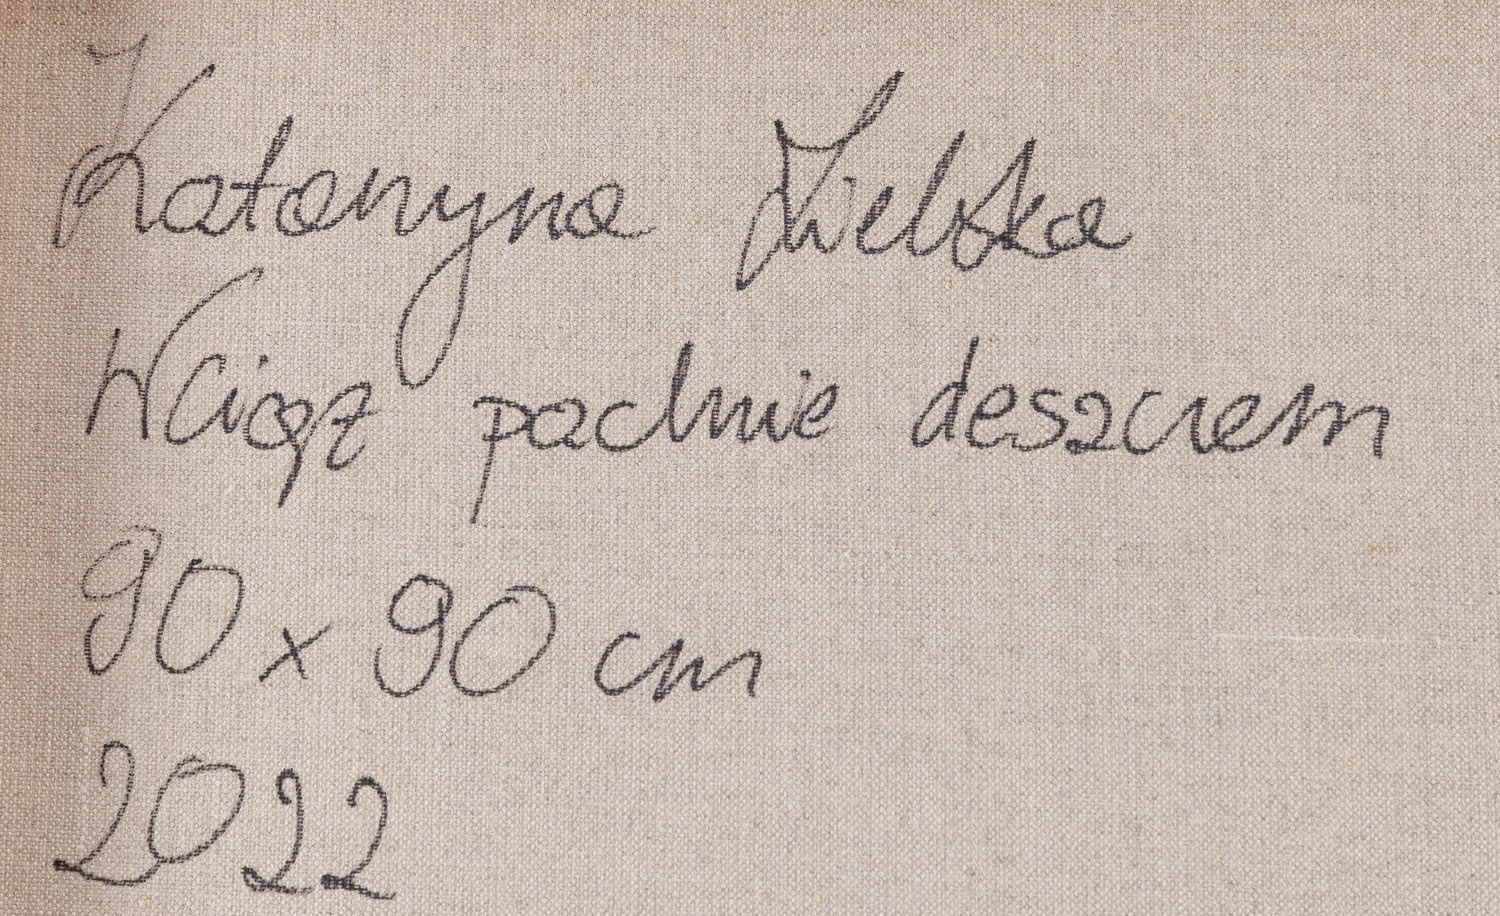 Katarzyna Zielska
Wciąż pachnie deszczem
90 x 90 cm
2022